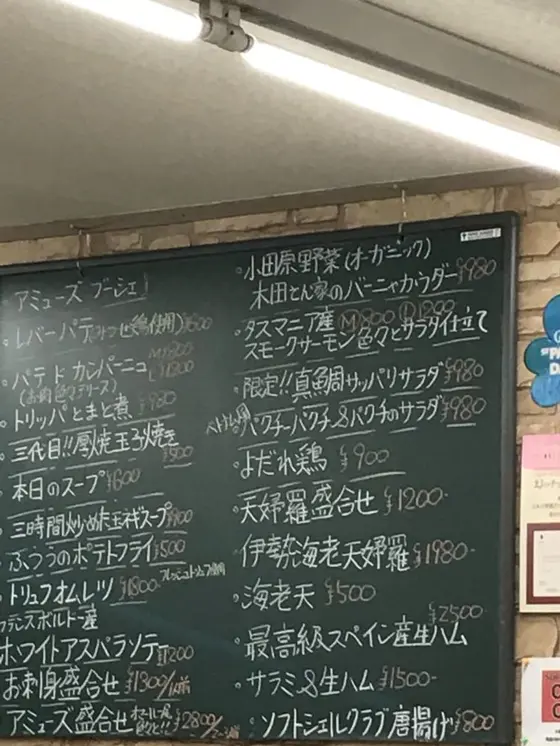 アミューズ ブーシェ
レバーパテ(みつせ鶏使用) ¥600
パテ ド カンパーニュ M¥800
(お肉色々テリーヌ) L¥1200
トリッパとまと煮 ¥980
三代目!!厚焼玉子焼き ¥500
本日のスープ ¥600
三時間炒めた玉ネギスープ ¥800
ふつうのポテトフライ ¥500
トリュフオムレツ ¥1800- フレッシュトリュフ使用
フランスボルドー産
ホワイトアスパラソテー ¥1200
お刺身盛合せ ¥1300/1人前
アミューズ盛合せ ¥2800/2~3人前
小田原野菜(オーガニック)
木田さん家のバーニャカウダー ¥980
タスマニア産 Ⓜ¥800 Ⓛ1200
スモークサーモン色々とサラダ仕立て
限定!!真鯛サッパリサラダ ¥980
ベトナム風 パクチーパクチー&パクチのサラダ ¥980
よだれ鶏 ¥900
天妤羅盛合せ ¥1200-
伊勢海老天妤羅 ¥1980-
海老天 ¥500
¥2500
最高級スペイン産生ハム
サラミ&生ハム ¥1500-
ソフトシェルクラブ唐揚げ ¥800